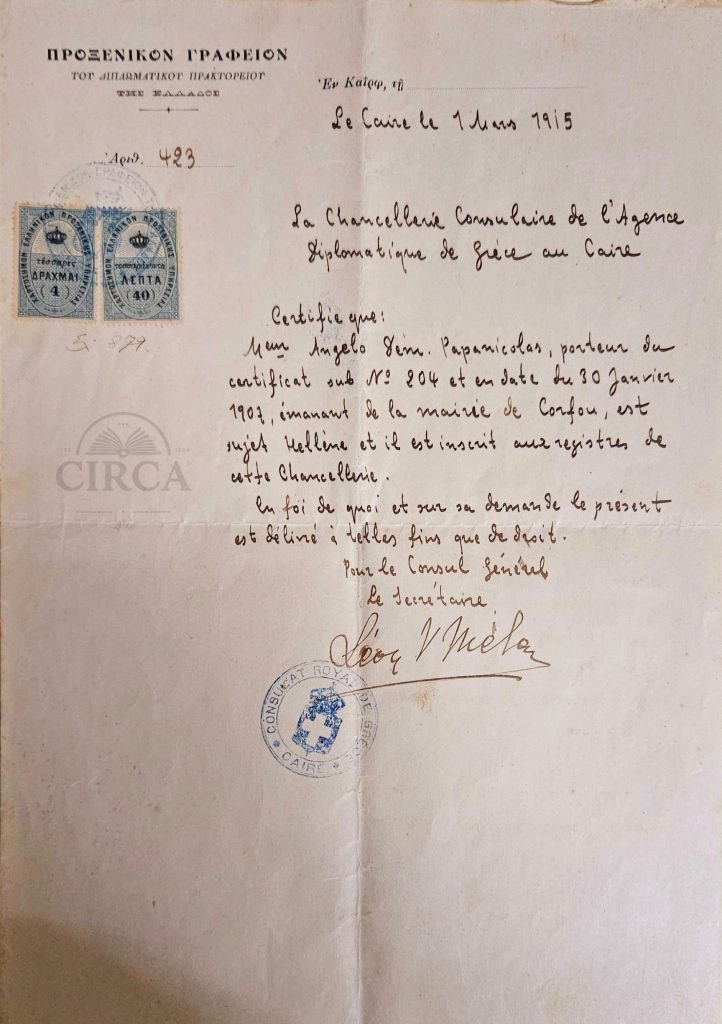 ΠΡΟΞΕΝΙΚΟΝ ΓΡΑΦΕΙΟΝ
ΤΟΥ ΔΙΠΛΩΜΑΤΙΚΟΥ ΠΡΑΚΤΟΡΕΙΟΥ
ΤΗΣ ΕΛΛΑΔΟΣ
Ἐν Καΐρῳ, τῇ
Le Caire le 1 Mars 1915
Ἀριθ. 423
ΧΑΡΤΟΣΗΜΟΝ ΕΛΛΗΝΙΚΗΣ ΠΡΟΞΕΝΙΚΗΣ ΥΠΗΡΕΣΙΑΣ
τέσσαρες
ΔΡΑΧΜΑΙ
(4)
ΧΑΡΤΟΣΗΜΟΝ ΕΛΛΗΝΙΚΗΣ ΠΡΟΞΕΝΙΚΗΣ ΥΠΗΡΕΣΙΑΣ
τεσσαράκοντα
ΛΕΠΤΑ
(40)
879
La Chancellerie Consulaire de l'Agence
Diplomatique de Grèce au Caire
Certifie que:
Angelo Dém. Papanicolas, porteur du
certificat sub Nº 204 et en date du 30 Janvier
1907, émanant de la mairie de Corfou, est
sujet Hellène et il est inscrit aux registres de
cette Chancellerie.
En foi de quoi et sur sa demande le présent
est délivré à telles fins que de droit.
Pour le Consul Général
Le Secrétaire
CONSULAT ROYAL DE GRÈCE
CAIRE
CIRCA